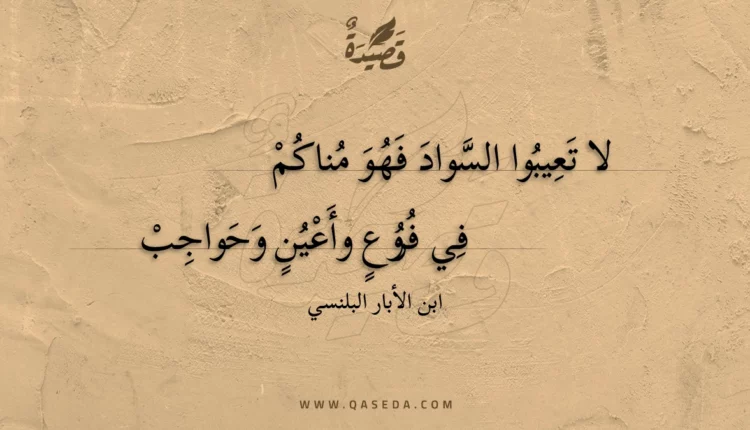 قَصِيدَةٌ
لا تَعِيبُوا السَّوادَ فَهُوَ مُناكُمْ
فِي فُرُعٍ وأَعْيُنٍ وَحَواجِبْ
ابن الأبار البلنسي
WWW.QASEDA.COM